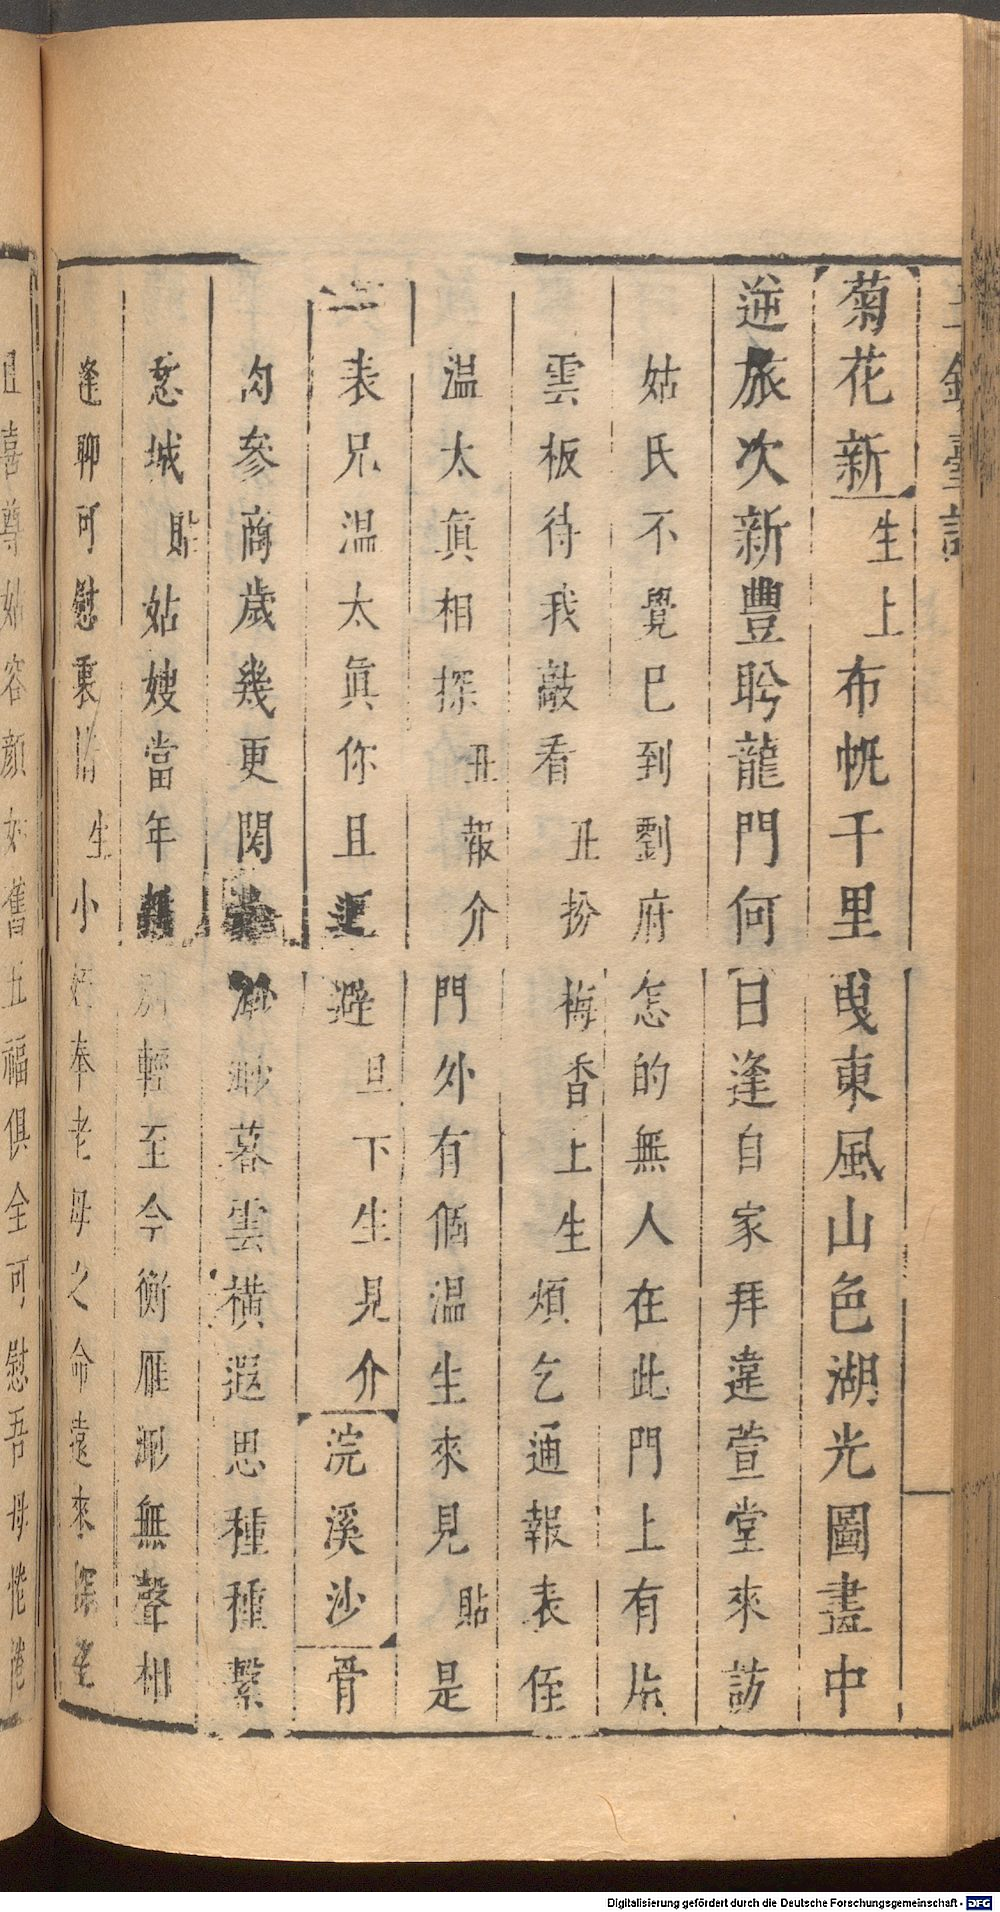 玉鏡臺記
菊花新生上布帆千里曳東風山色湖光圖畫中
逆旅次新豐盻龍門何日逢自家拜違萱堂來訪
姑氏不覺巳到劉府怎的無人在此門上有片
雲板待我敲看丑扮梅香上生煩乞通報表侄
温太眞相探丑報介門外有個温生來見貼是
表兄温太眞你且廻避旦下生見介浣溪沙骨
肉參商歲幾更関渺暮雲橫遐思種種縈
愁城貼姑嫂當年輕至今衡雁渺無聲相
逢聊可慰衷情生小姪奉老母之命遠來探望
且喜尊姑容顔如舊五福俱全可慰吾母惓惓
Digitalisierung gefördert durch die Deutsche Forschungsgemeinschaft - DFG